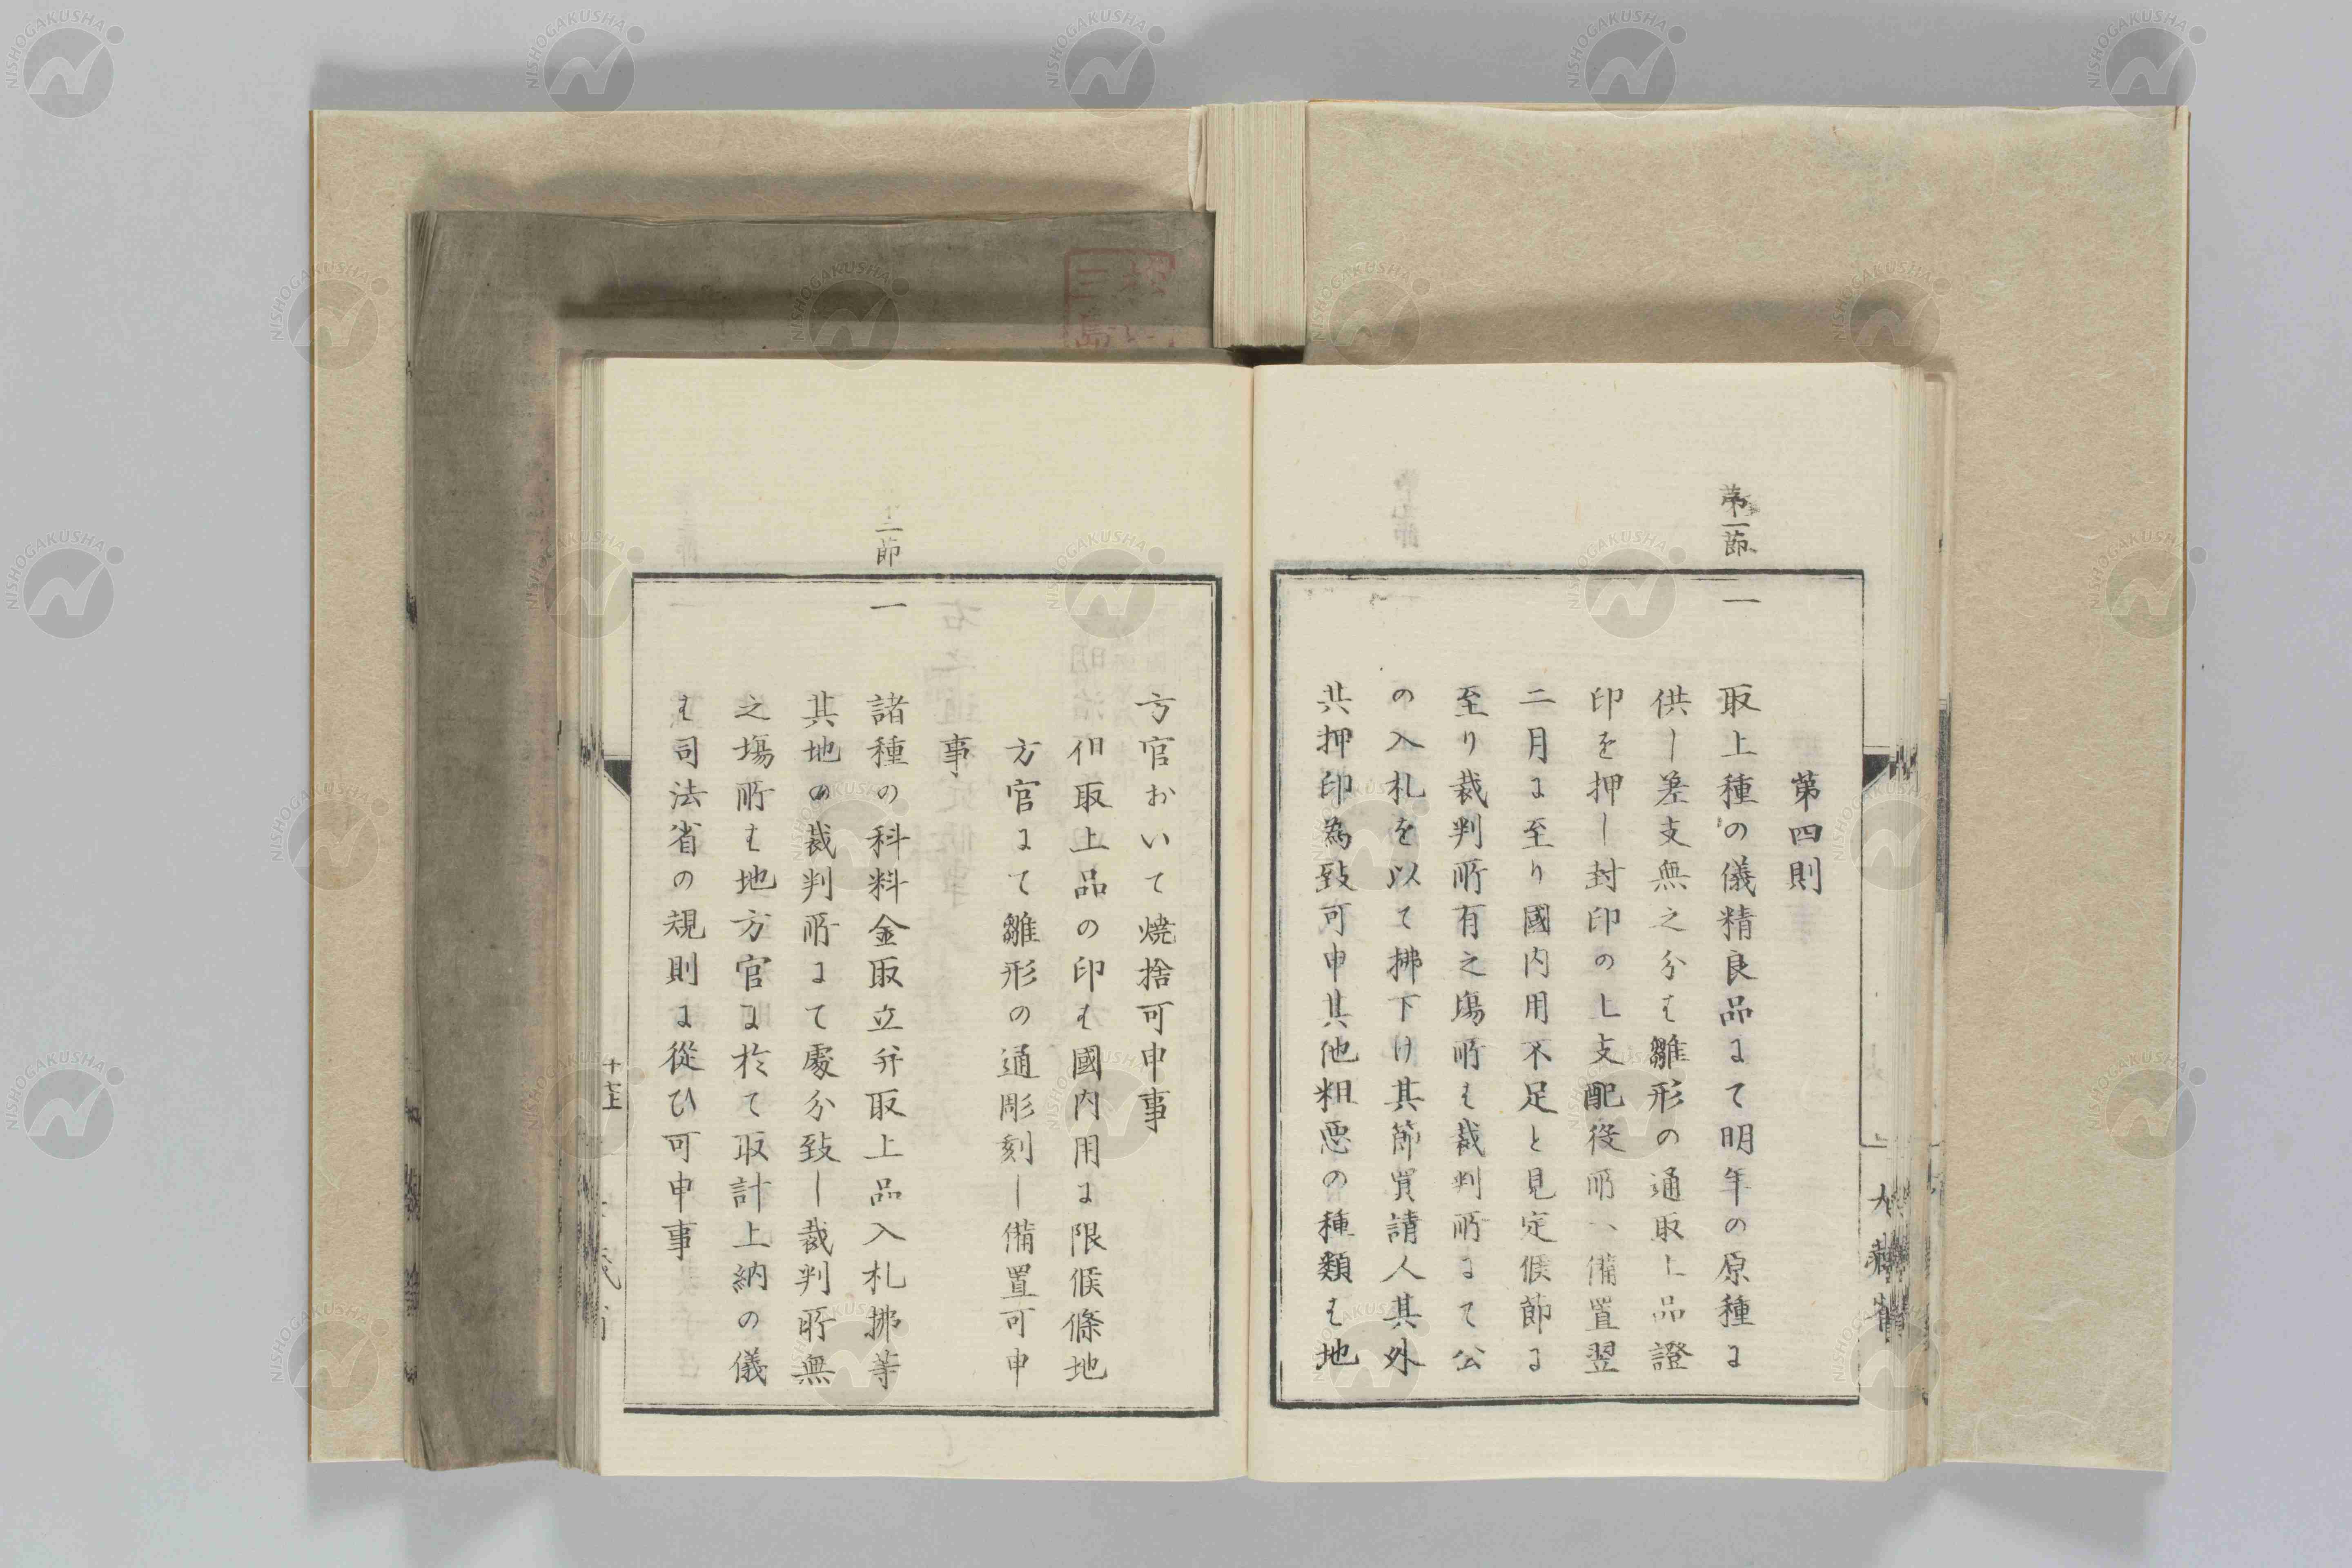 第四則
第一節
一 取上種の儀精良品にて明年の原種に
供し差支無之分は雛形の通取上品證
印を押し封印の上支配役所へ備置翌
二月に至り國内用不足と見定候節に
至り裁判所有之塲所は裁判所にて公
の入札を以て拂下け其節買請人其外
共押印為致可申其他粗悪の種類は地
大藏省
方官おいて焼捨可申事
但取上品の印は國内用に限候條地
方官にて雛形の通彫刻し備置可申
事
二節
一 諸種の科料金取立并取上品入札拂等
其地の裁判所にて處分致し裁判所無
之塲所は地方官に於て取計上納の儀
は司法省の規則に從ひ可申事
NISHOGAKUSHA